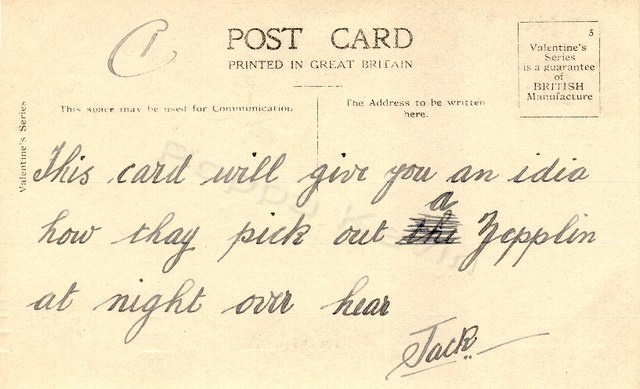 1
POST CARD
PRINTED IN GREAT BRITAIN
3
Valentine's
Series
is a guarantee
of
BRITISH
Manufacture
Valentine's Series
This space may be used for Communication.
The Address to be written
here.
This card will give you an idia
how thay pick out the a Zepplin
at night over hear
Jack